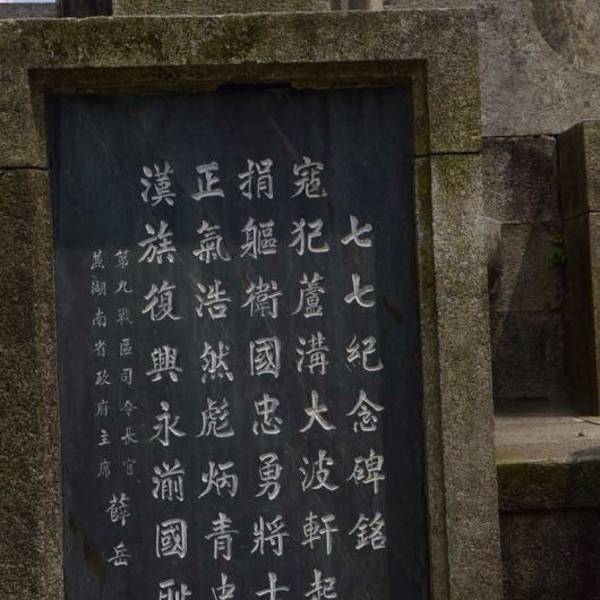 七七紀念碑銘
寇犯蘆溝大波軒起
捐軀衛國忠勇將士
正氣浩然彪炳青史
漢族復興永湔國恥
第九戰區司令長官
兼湖南省政府主席
薛岳